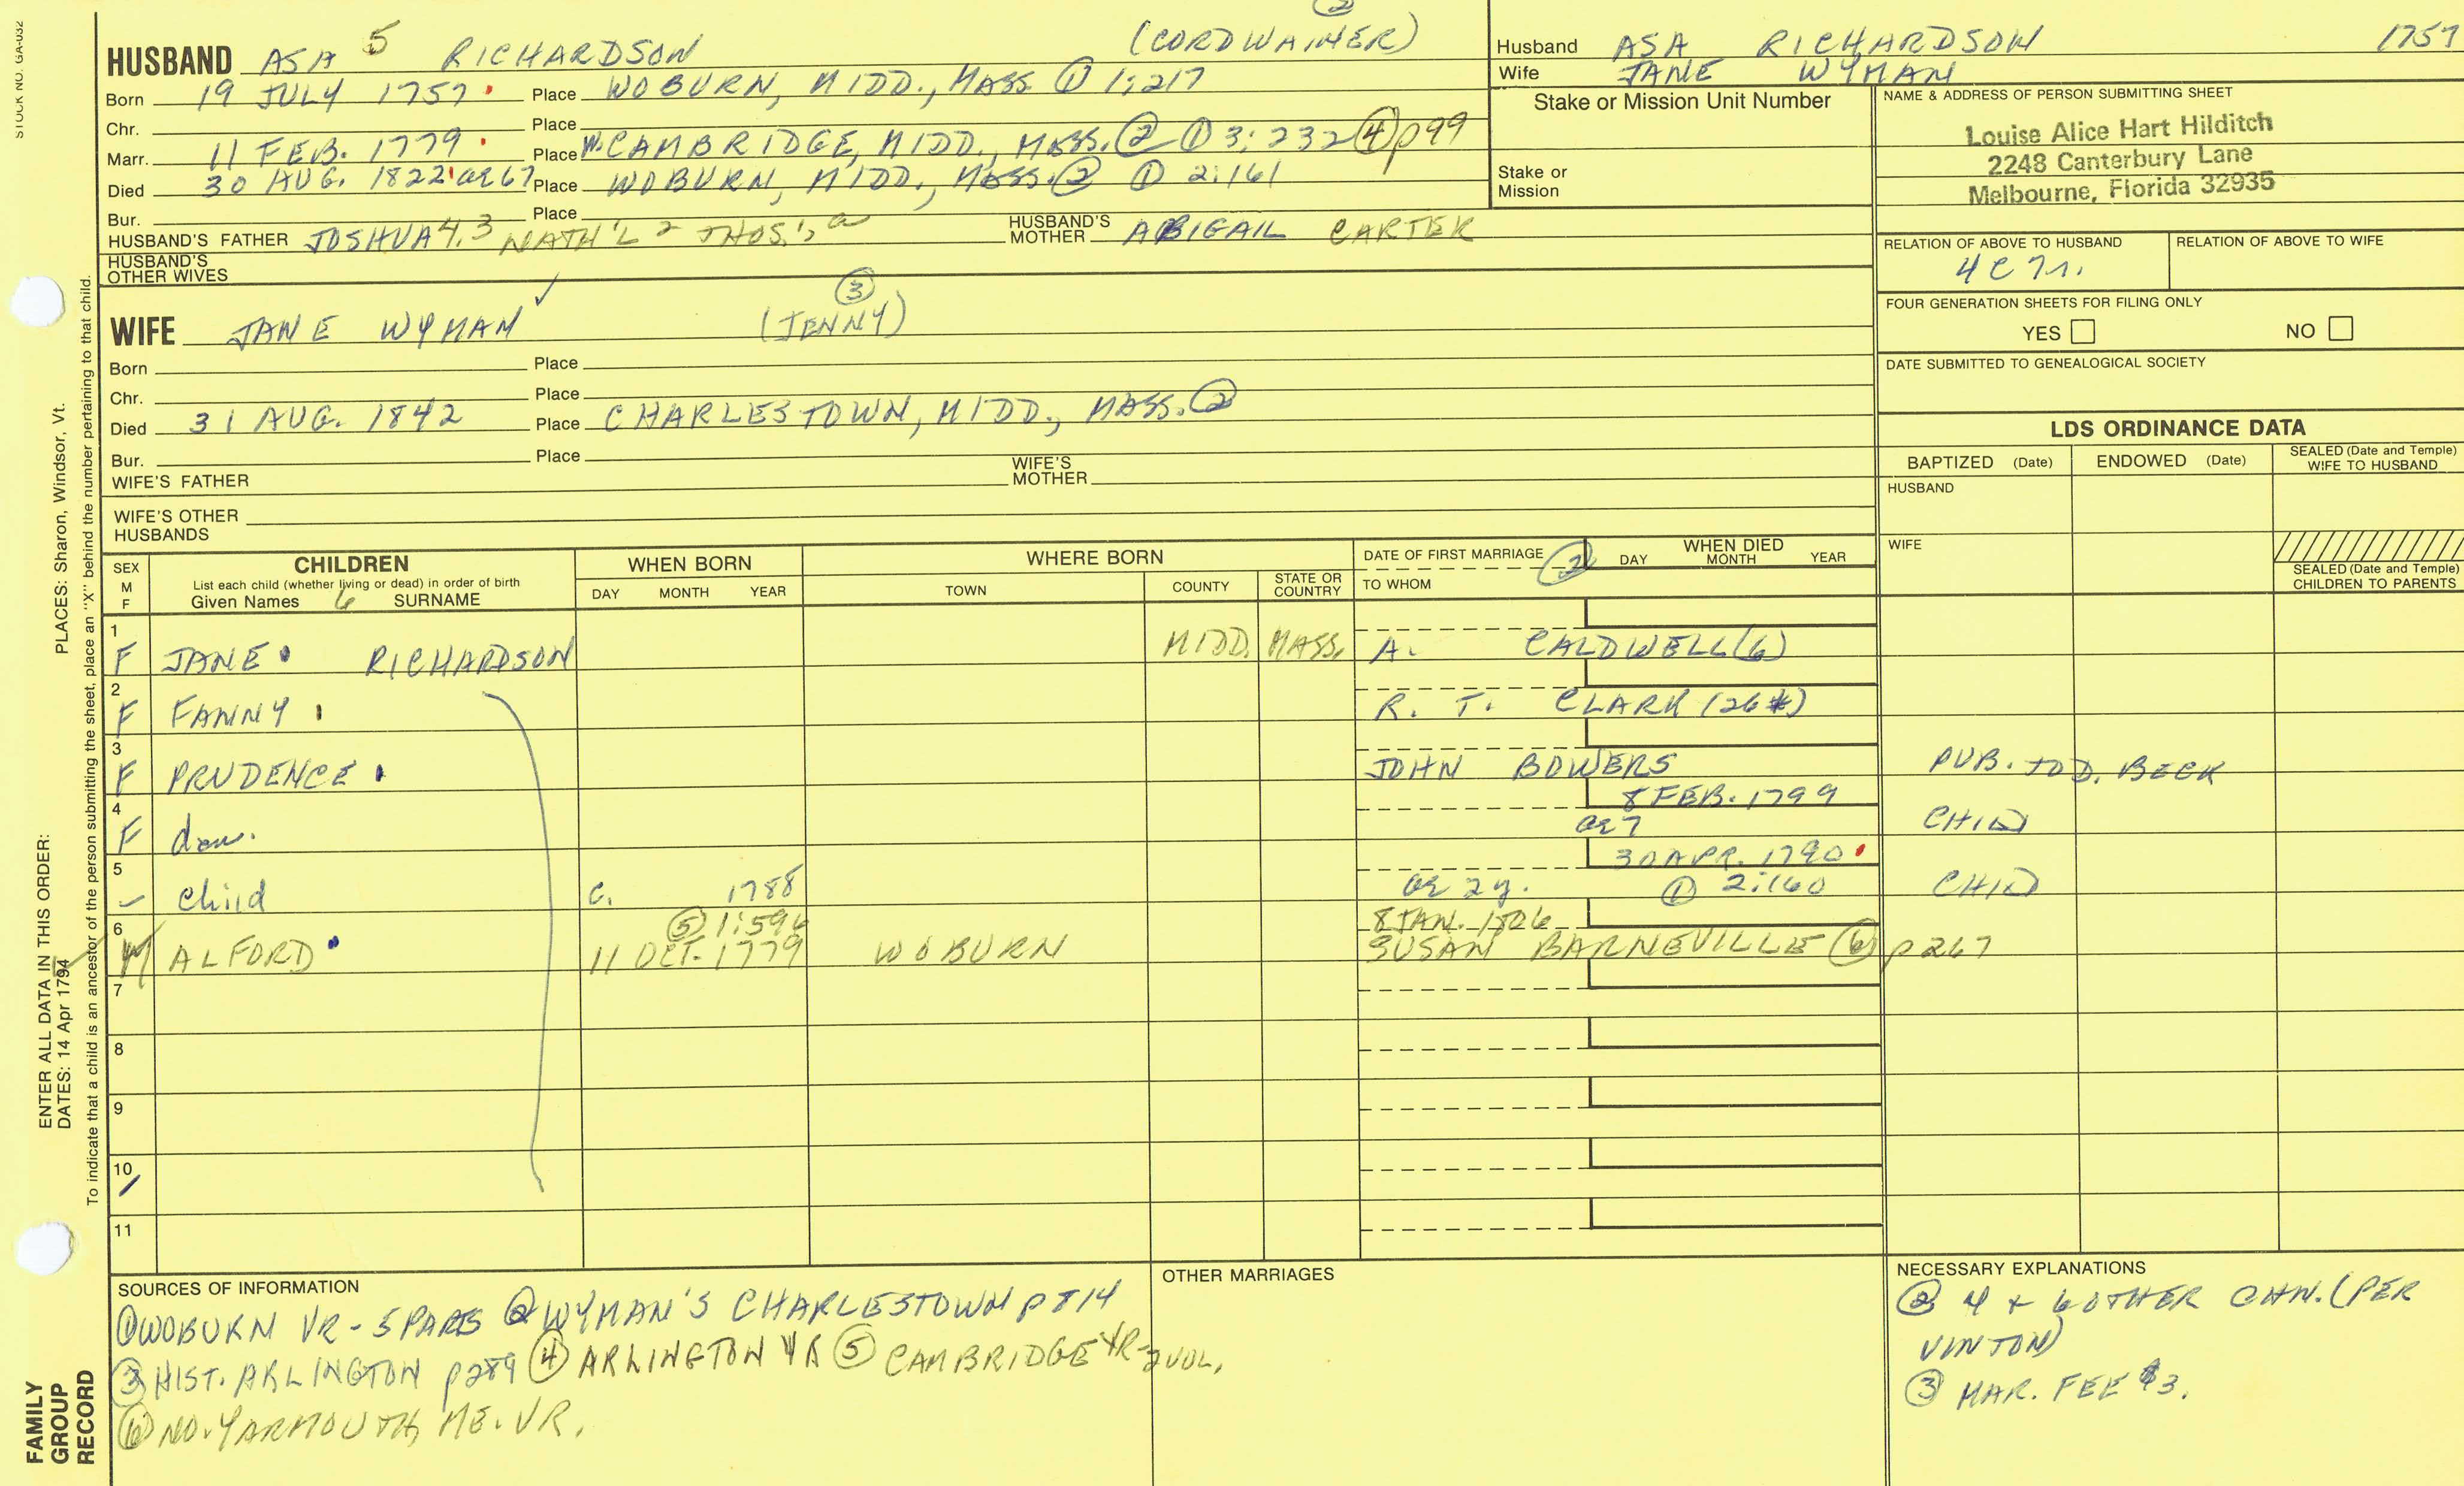 STOCK NO. GA-032
HUSBAND ASA 5 RICHARDSON (CORDWAINER) ②
Born 19 JULY 1757 Place WOBURN, MIDD., MASS ① 1:217
Chr. Place
Marr. 11 FEB. 1779 Place W. CAMBRIDGE, MIDD., MASS. ② ① 3:232 ④ p99
Died 30 AUG. 1822 ae 67 Place WOBURN, MIDD., MASS. ② ① 2:161
Bur. Place
HUSBAND'S FATHER JOSHUA 4,3 NATH'L 2 THOS. HUSBAND'S MOTHER ABIGAIL CARTER
HUSBAND'S OTHER WIVES
WIFE JANE WYMAN ✓ (JENNY) ③
Born Place
Chr. Place
Died 31 AUG. 1842 Place CHARLESTOWN, MIDD., MASS. ②
Bur. Place
WIFE'S FATHER WIFE'S MOTHER
WIFE'S OTHER HUSBANDS
Husband ASA RICHARDSON 1757
Wife JANE WYMAN
Stake or Mission Unit Number
Stake or Mission
NAME & ADDRESS OF PERSON SUBMITTING SHEET
Louise Alice Hart Hilditch
2248 Canterbury Lane
Melbourne, Florida 32935
RELATION OF ABOVE TO HUSBAND RELATION OF ABOVE TO WIFE
4C7r.
FOUR GENERATION SHEETS FOR FILING ONLY
YES NO
DATE SUBMITTED TO GENEALOGICAL SOCIETY
LDS ORDINANCE DATA
BAPTIZED (Date) ENDOWED (Date) SEALED (Date and Temple) WIFE TO HUSBAND
HUSBAND
WIFE
SEALED (Date and Temple) CHILDREN TO PARENTS
SEX M F
CHILDREN
List each child (whether living or dead) in order of birth
Given Names 6 SURNAME
WHEN BORN
DAY MONTH YEAR
WHERE BORN
TOWN COUNTY STATE OR COUNTRY
DATE OF FIRST MARRIAGE ②
TO WHOM
WHEN DIED
DAY MONTH YEAR
1 F JANE RICHARDSON MIDD. MASS. A. CALDWELL (6)
2 F FANNY R. T. CLARK (26*)
3 F PRUDENCE JOHN BOWERS PUB. TO D. BECK
4 F dau. 8 FEB. 1799 ae 7 CHID
5 – child c. 1788 ae 2y. 30 APR. 1790 ① 2:160 CHID
6 M ALFORD ⑤ 1:596 11 OCT. 1779 WOBURN 8 JAN. 1806 SUSAN BARNEVILLE ⑥ p267
7
8
9
10
11
SOURCES OF INFORMATION
① WOBURN VR - 5 PARTS ② WYMAN'S CHARLESTOWN p 814
③ HIST. ARLINGTON p289 ④ ARLINGTON VR ⑤ CAMBRIDGE VR - 2 VOL.
⑥ NO. YARMOUTH, ME. VR.
OTHER MARRIAGES
NECESSARY EXPLANATIONS
② 4 + 6 OTHER CHN. (PER
VINTON)
③ MAR. FEE $3.
ENTER ALL DATA IN THIS ORDER: PLACES: Sharon, Windsor, Vt.
DATES: 14 Apr 1794
To indicate that a child is an ancestor of the person submitting the sheet, place an "X" behind the number pertaining to that child.
FAMILY
GROUP
RECORD